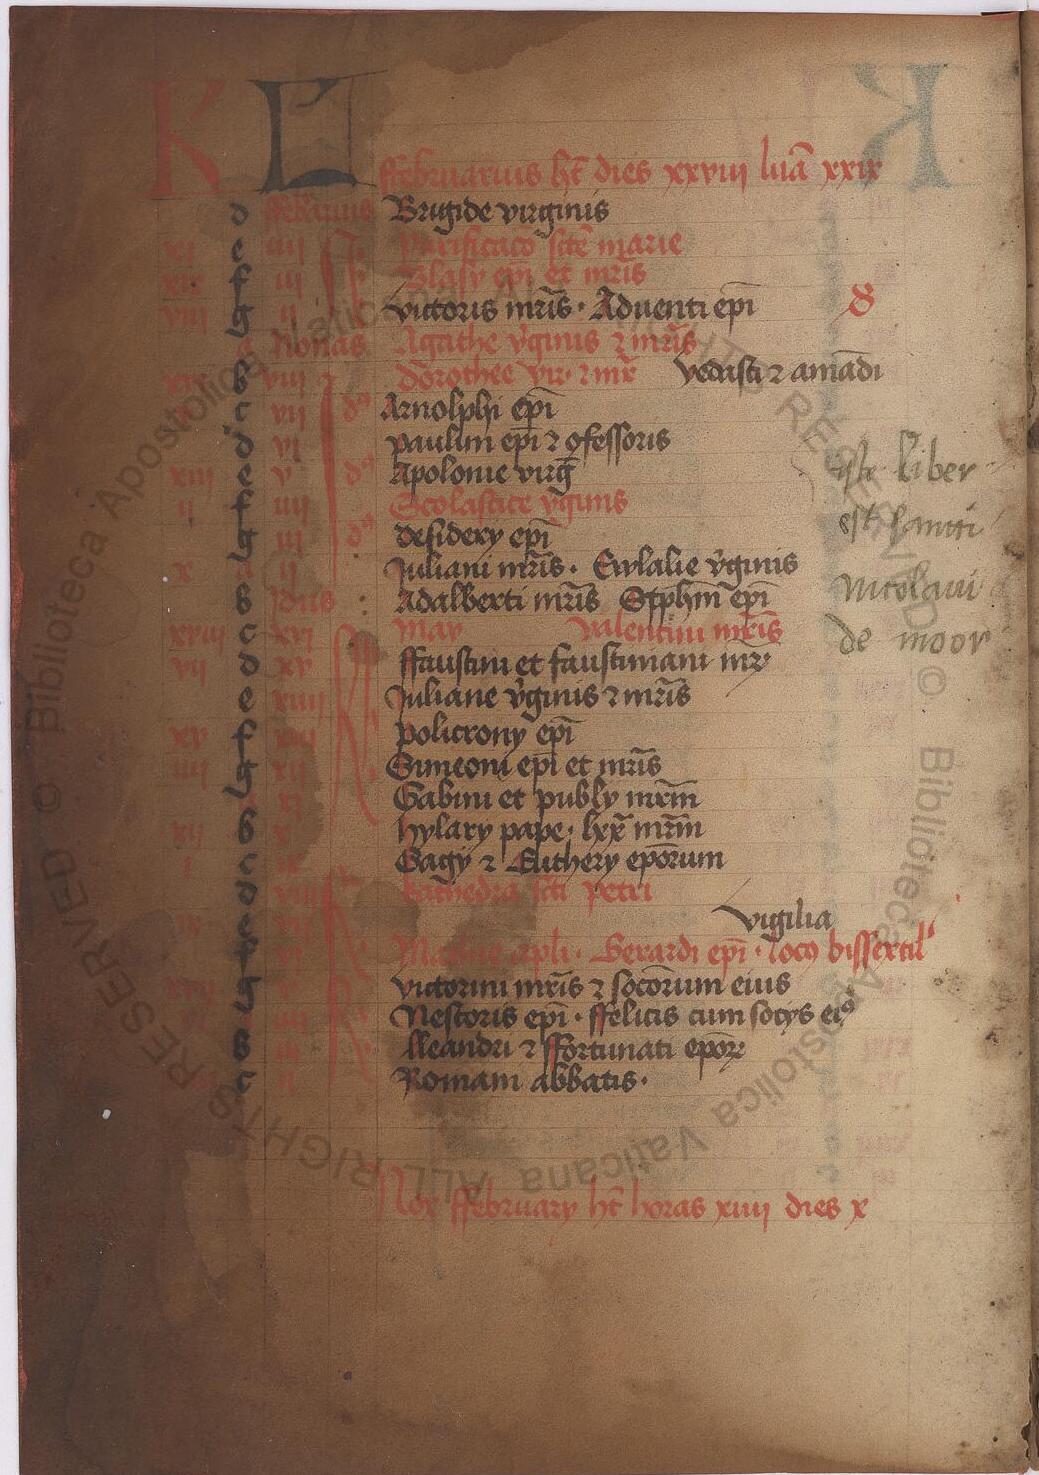 KL
ffebruarius ht̄ dies xxviii luā xxix
d Brigide virginis
xi e iiii Purificacō scē marie
xix f iii Blasy epī et mr̄is
viii g ii victoris mr̄is · Aduenti epī
a Nonas Agathe v̓ginis ⁊ mr̄is
b viii dorothee vir· ⁊ mr̄ vedasti ⁊ amādi
c vii Arnolphi epī
d vi paulini epī ⁊ ꝯfessoris
xiii e v Apolonie virḡ
ii f iiii Scolastice v̓ginis
g iii desidery epī
x a ii Juliani mr̄is · Eulalie v̓ginis
b Idus Adalberti mr̄is Stphm̄ epī
xviii c xvi Mar valentini mr̄is
vii d xv ffaustini et faustiniani mr̄
e xiiii Juliane v̓ginis ⁊ mr̄is
xv f xiii policrony epī
iiii g xii Simeoni epī et mr̄is
a xi Gabini et publy mr̄m
xii b x hylary pape · lxx mr̄m
i c ix Gagy ⁊ Euthery epōrum
d viii kathedra scī petri
e vii vigilia
f vi Mathie apli · Gerardi epī · locꝯ bissextil
g v victorini mr̄is ⁊ socōrum eius
a iiii Nestoris epī · ffelicis cum socys eiꝯ
b iii lleandri ⁊ ffortunati epor̄
c ii Romani abbatis ·
Nox ffebruary ht̄ horas xiiii dies x
iste liber
est sancti
Nicolaui
de moor
© Biblioteca Apostolica Vaticana ALL RIGHTS RESERVED
© Biblioteca Apostolica Vaticana ALL RIGHTS RESERVED